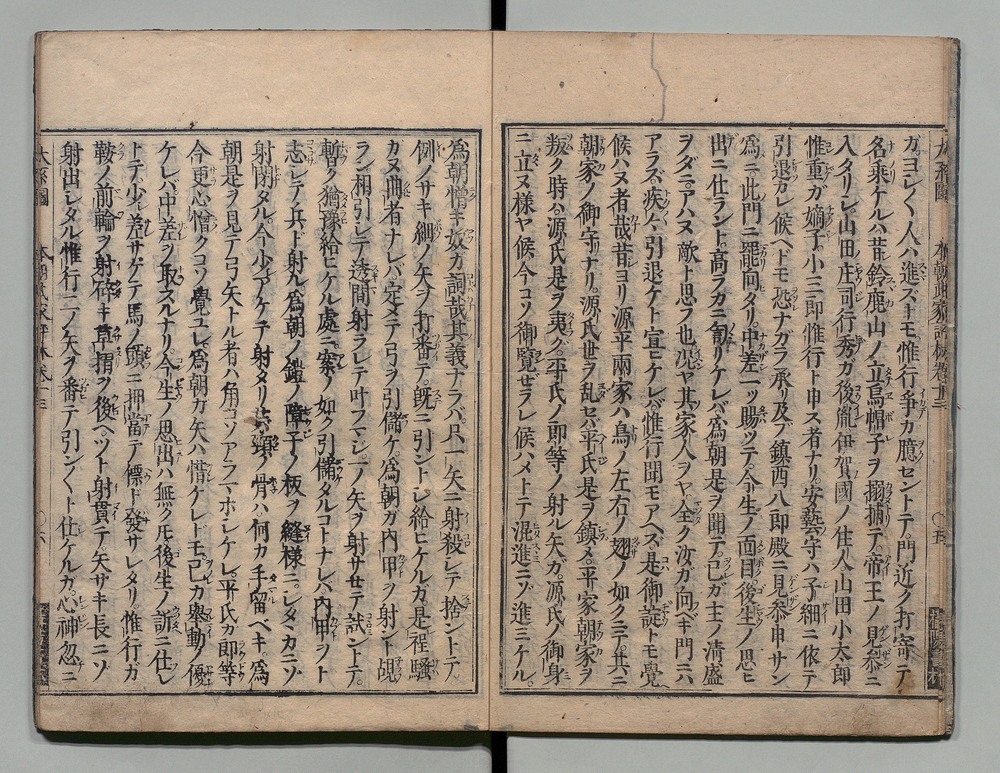 ガヨレ〱人ハ進ズキモ惟行爭カ臆セントテ。門近ク打寄テ
名乘ケルハ昔鈴鹿山ノ立烏帽子ヲ搦捕テ。帝王ノ見參ニ
入タリシ。山田庄司行秀ガ後胤伊賀國ノ住人山田小太郎
惟重ガ嫡子。小三郎惟行ト申ス者ナリ。安藝守ハ子細ニ依テ
引退カレ候ヘドモ恐ナガラ承リ及ブ鎭西八郎殿ニ見參申サン
爲ニ此門ニ罷向タリ。中差一ツ賜ツテ。今生ノ面目後生ノ思ヒ
出ニ仕ラント。高ラカニ匐リケレバ爲朝是ヲ聞テ。己ガ主ノ清盛
ヲダニアハヌ敵ト思フ也。况ヤ其家人ヲヤ。全ク汝ガ向ベキ門ニハ
アラズ。疾々引退ケト宣ヒケレバ。惟行聞モアヘズ。是御諚トモ覺
候ハヌ者哉。昔ヨリ源平兩家ハ鳥ノ左右ノ翅ノ如クニテ。共ニ
朝家ノ御守ナリ。源氏世ヲ乱セバ平氏是ヲ鎭メ。平家朝家ヲ
叛ク時ハ。源氏是ヲ夷グ。平氏ノ郎等ノ射ル矢ガ。源氏ノ御身
ニ立ヌ様ヤ候。今コソ御覽ゼラレ候ハメトテ混進ニゾ進ミケル。
爲朝憎キ奴ガ詞哉其義ナラバ。只一矢ニ射殺シテ捨ントテ。
例ノサキ細ノ矢ヲ打番テ。既ニ引ントシ給ヒケルガ。是程騒
カヌ曲者ナレバ定メテ弓ヲ引儲ケ。爲朝ガ内甲ヲ射ント覘
ラン相引シテ透間射ラレテ叶フマジ。一ノ矢ヲ射サセテ試ントテ。
暫ク猶豫給ヒケル處ニ。案ノ如ク引儲タルコトナレバ。内甲ヲト
志シテ兵ド射ル。爲朝ノ鎧ノ障子ノ板ヲ縫様ニ。シタヽカニゾ
射閉タル。今少アゲテ射タリ共。頭ノ骨ハ何カ手留ベキ。爲
朝是ヲ見テコソ矢トル者ハ角コソアラマホシケレ。平氏ガ郎等
今更心憎クコソ覺ユレ。爲朝ガ矢ハ惜ケレドモ。己ガ擧動ノ優
ケレバ中差ヲ取スルナリ。今生ノ思出ハ無クモ。後生ノ訴ニ仕レ
トテ。少シ差サゲテ馬ノ頭ニ押當テ。㯹ド發サレタリ。惟行ガ
鞍ノ前輪ヲ射碎キ。草摺ヲ後ヘツト射貫テ矢サキ長ニゾ
射出シタル。惟行二ノ矢ヲ番テ引ン〱ト仕ケルガ。心神忽ニ
大系圖
本朝武家評林卷十三
〇六